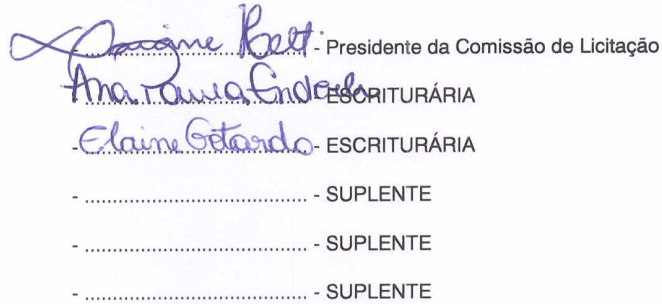 - ........................ - Presidente da Comissão de Licitação
Ana Paula ESCRITURÁRIA
- Elaine Gotardo - ESCRITURÁRIA
- ........................ - SUPLENTE
- ........................ - SUPLENTE
- ........................ - SUPLENTE